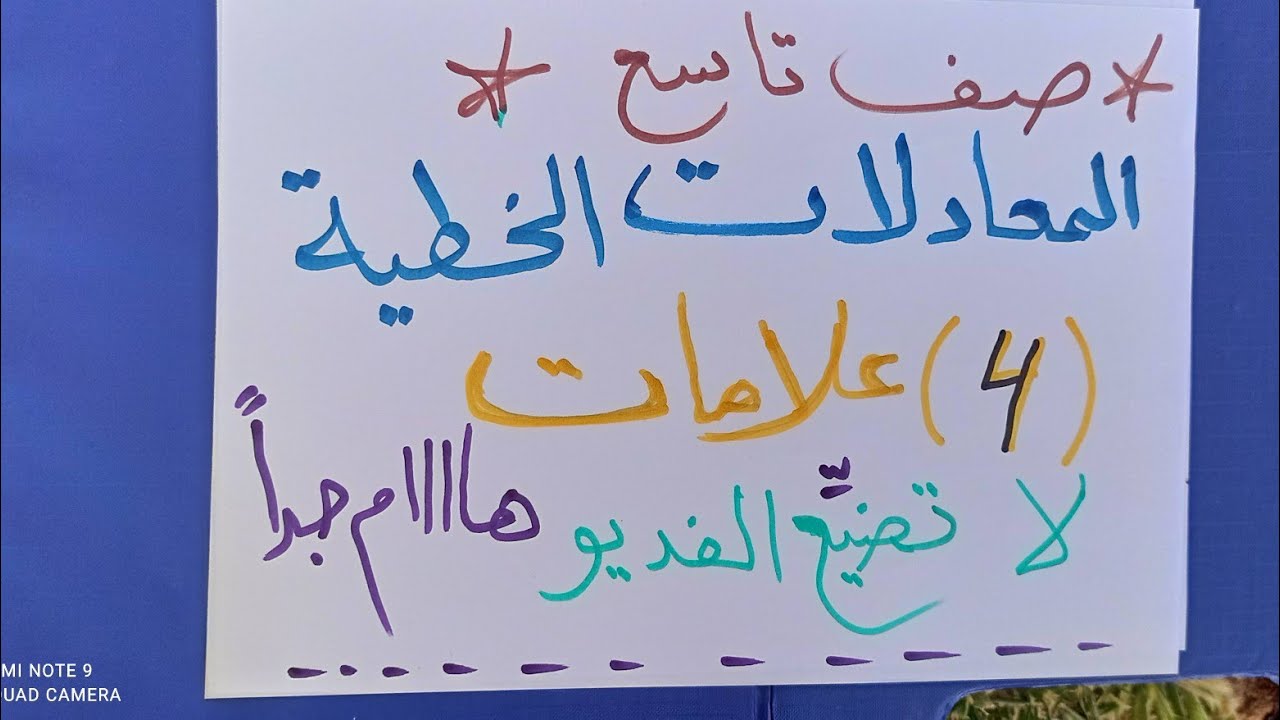 * صف تاسع *
المعادلات الخطية
(4) علامات
لا تضيّع الفديو هاااام جداً
MI NOTE 9
QUAD CAMERA